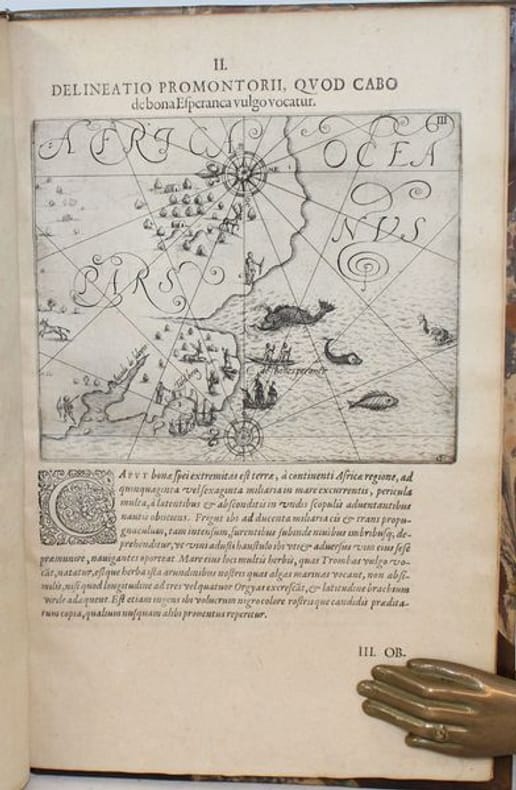 II.
DELINEATIO PROMONTORII, QVOD CABO
de bona Esperanca vulgo vocatur.
III
AFRICÆ
OCEA
NVS
PARS
CAPVT bonæ spei extremitas est terræ, à continenti Africæ regione, ad
quinquaginta vel sexaginta miliaria in mare excurrentis, pericula
multa, à latentibus & absconditis in vndis scopulis aduentantibus
nautis obijciens. Frigus ibi ad ducenta miliaria cis & trans propu-
gnaculum, tam intensum, furentibus subinde niuibus imbribusq; de-
prehenditur, vt vini adusti haustulo ibi vti & aduersus vim eius sese
præmunire, nauigantes oporteat. Mare eius loci multis herbis, quas Trombas vulgo vo-
cāt, natatur, estque herba ista arundinibus nostris quas algas marinas vocant, non absi-
milis, nisi quod longitudine ad tres vel quatuor Orgyas excrescāt, & latitudine brachium
virile adæquent. Est etiam ingens ibi volucrum nigro colore rostrisque candidis prædita-
rum copia, qualium nusquam alibi prouentus reperitur.
III. OB.